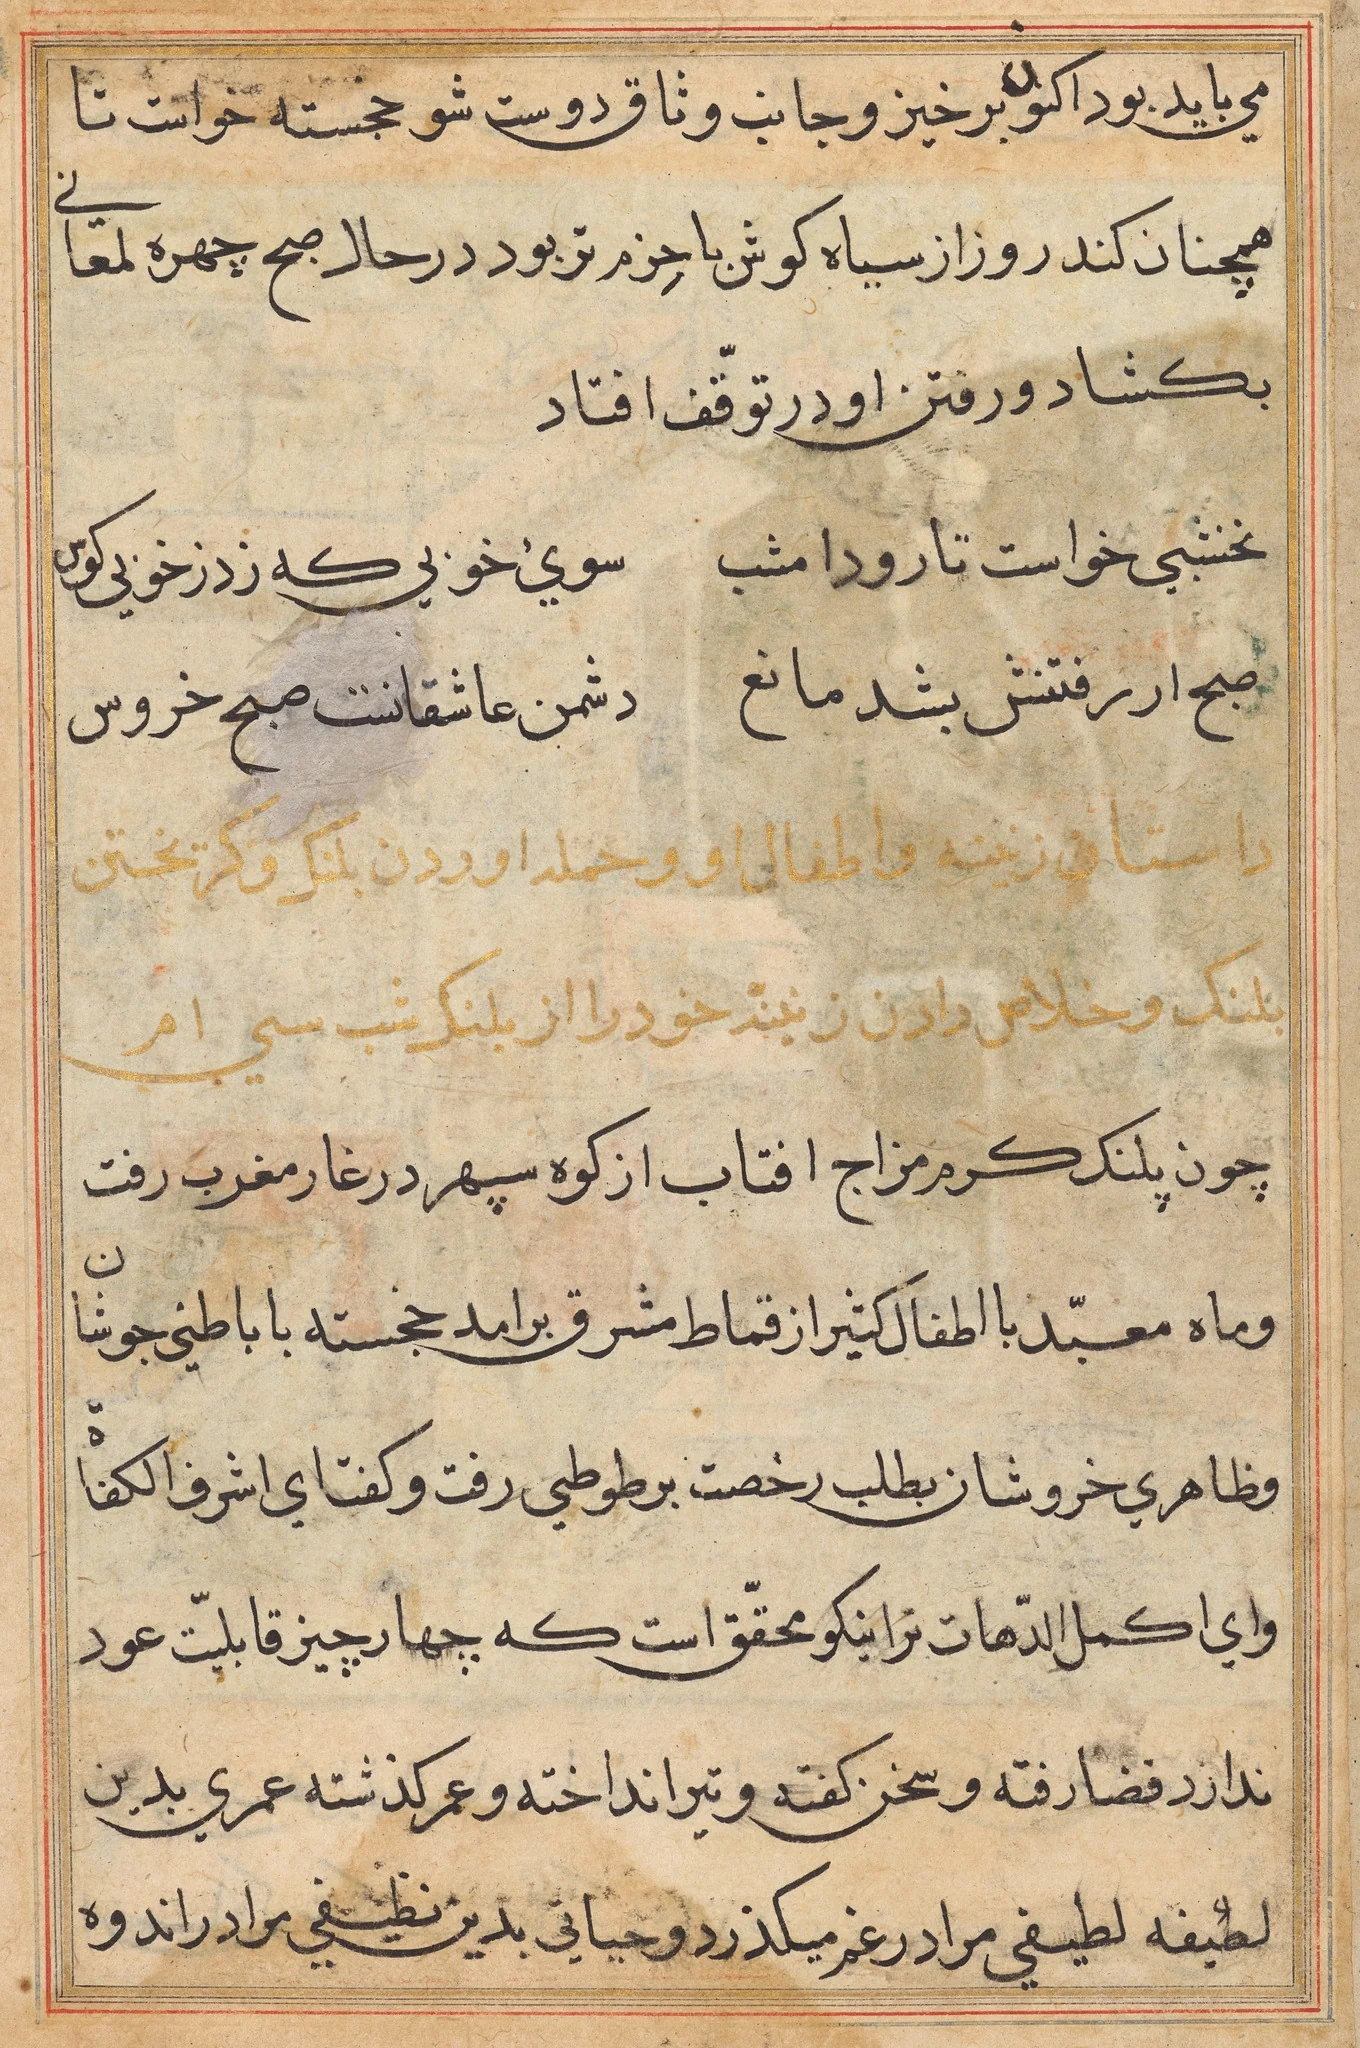 می باید بود اکنون برخیز و جانب وثاق دوست شو خجسته خواست تا
همچنان کند روز از سیاه کوش با حزم تر بود در حال صبح چهره لمعانی
بکشاد و رفتن او در توقّف افتاد
نخشبی خواست تا رود امشب سویٔ خوبی که زد ز خوبی کوس
صبح از رفتنش بشد مانع دشمن عاشقانست صبح خروس
داستان زنینه و اطفال او و حمله اوردن بلنک و کریختن
بلنک و خلاص دادن زنینه خود را از بلنک شب سی ام
چون پلنک کرم مزاج افتاب از کوه سپهر در غار مغرب رفت
و ماه معبّد با اطفال کثیر از قماط مشرق برامد خجسته با باطنی جوشان
و ظاهری خروشان بطلب رخصت بر طوطی رفت و کفت ای اشرف الکفاة
و ای اکمل الدّهات ترا نیکو محقّق است که چهار چیز قابلیّت عود
ندارد قضا رفته و سخن کفته و تیر انداخته و عمر کذشته عمری بدین
لطیفه لطیفی مرا در غم میکذرد و حیاتی بدین نظیفی مرا در اندوه